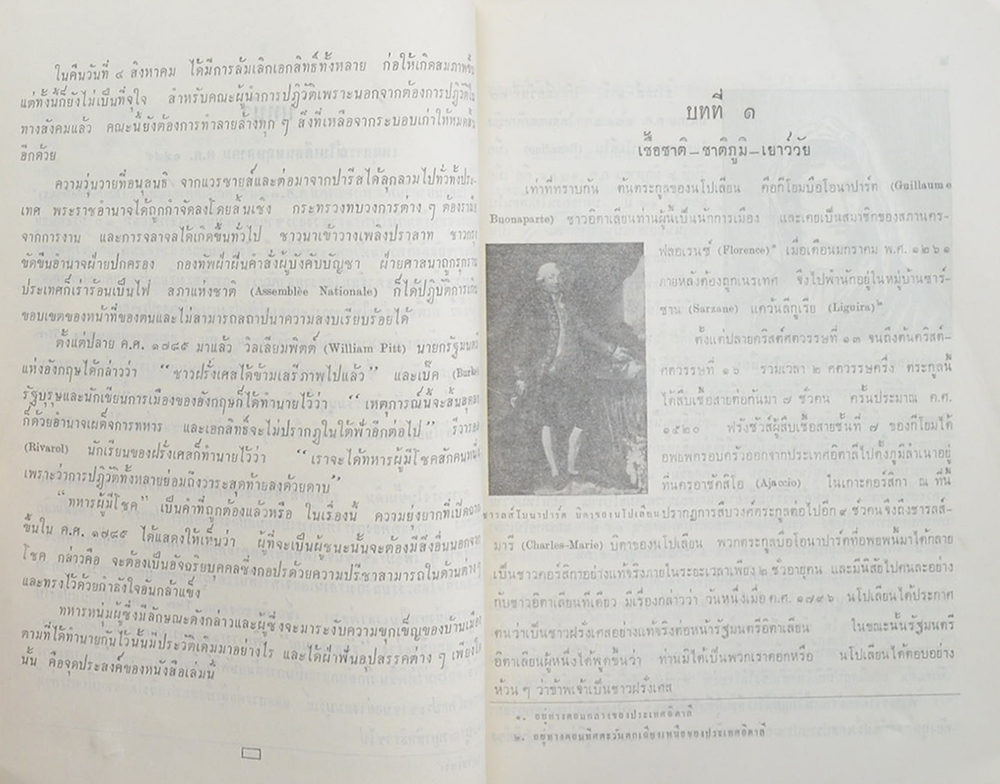 ในคืนวันที่ ๔ สิงหาคม ได้มีการล้มเลิกเอกสิทธิ์ทั้งหลาย ก่อให้เกิดสมภาคขึ้น
แต่ทั้งนี้ก็ยังไม่เป็นที่จุใจ สำหรับคณะผู้นำการปฏิวัติเพราะนอกจากต้องการปฏิวัติใน
ทางสังคมแล้ว คณะนี้ยังต้องการทำลายล้างทุก ๆ สิ่งที่เหลือจากระบอบเก่าให้หมดสิ้น
อีกด้วย
ความวุ่นวายที่อนุสนธิ จากแวรซายส์และต่อมาจากปารีสได้ลุกลามไปทั่วทั้งประ-
เทศ พระราชอำนาจได้ถูกกำจัดลงโดยสิ้นเชิง กระทรวงทบวงการต่าง ๆ ต้องร้าง
จากการงาน และการจลาจลได้เกิดขึ้นทั่วไป ชาวนาเข้าวางเพลิงปราสาท ชาวกรุง
ขัดขืนอำนาจฝ่ายปกครอง กองทัพฝ่าฝืนคำสั่งผู้บังคับบัญชา ฝ่ายศาสนาถูกรุกราน
ประเทศก็เร่าร้อนเป็นไฟ สภาแห่งชาติ (Assemblèe Nationale) ก็ได้ปฏิบัติการเกิน
ขอบเขตของหน้าที่ของตนและไม่สามารถสถาปนาความสงบเรียบร้อยได้
ตั้งแต่ปลาย ค.ศ. ๑๗๘๕ มาแล้ว วิลเลียมพิตต์ (William Pitt) นายกรัฐมนตรี
แห่งอังกฤษได้กล่าวว่า “ชาวฝรั่งเศสได้ข้ามเสรีภาพไปแล้ว” และเบ็ค (Burke)
รัฐบุรุษและนักเขียนการเมืองของอังกฤษก็ได้ทำนายไว้ว่า “เหตุการณ์นี้จะสิ้นสุดลง
ก็ด้วยอำนาจเผด็จการทหาร และเอกสิทธิ์จะไม่ปรากฏในใต้ฟ้าอีกต่อไป” รีวารอล
(Rivarol) นักเรียนของฝรั่งเศสก็ทำนายไว้ว่า “เราจะได้ทหารผู้มีโชคสักคนหนึ่ง
เพราะว่าการปฏิวัติทั้งหลายย่อมถึงวาระสุดท้ายลงด้วยดาบ”
“ทหารผู้มีโชค” เป็นคำที่ถูกต้องแล้วหรือ ในเรื่องนี้ ความยุ่งยากที่เปิดฉาก
ขึ้นใน ค.ศ. ๑๗๘๕ ได้แสดงให้เห็นว่า ผู้ที่จะเป็นผู้ชนะนั้นจะต้องมีสิ่งอื่นนอกจาก
โชค กล่าวคือ จะต้องเป็นอัจฉริยบุคคลซึ่งกอปรด้วยความปรีชาสามารถในด้านต่างๆ
และทรงไว้ด้วยกำลังใจอันกล้าแข็ง
ทหารหนุ่มผู้ซึ่งมีลักษณะดังกล่าวและผู้ซึ่งจะมาระงับความขุกเข็ญของบ้านเมือง
ตามที่ได้ทำนายกันไว้นั้นมีประวัติเดิมมาอย่างไร และได้ฝ่าฟันอุปสรรคต่าง ๆ เพียงใด
นั้น คือจุดประสงค์ของหนังสือเล่มนี้
บทที่ ๑
เชื้อชาติ–ชาติภูมิ–เยาว์วัย
เท่าที่ทราบกัน ต้นตระกูลของนโปเลียน คือกีโยมบือโอนาปาร์ต (Guillaume
Buonaparte) ชาวอิตาเลียนท่านผู้นี้เป็นนักการเมือง และเคยเป็นสมาชิกของสภานคร-
ฟลอเรนซ์ (Florence)๑ เมื่อเดือนมกราคม พ.ศ. ๑๒๖๑
ภายหลังต้องถูกเนรเทศ จึงไปพำนักอยู่ในหมู่บ้านซาร์-
ซาน (Sarzane) แคว้นลีกูเรีย (Liguira)๒
ตั้งแต่ปลายคริสต์ศตวรรษที่ ๑๓ จนถึงต้นคริสต์-
ศตวรรษที่ ๑๖ รวมเวลา ๒ ศตวรรษครึ่ง ตระกูลนี้
ได้สืบเชื้อสายต่อกันมา ๗ ชั่วคน ครั้นประมาณ ค.ศ.
๑๕๒๐ ฟรังซัวส์ผู้สืบเชื้อสายชั้นที่ ๗ ของกีโยมได้
อพยพครอบครัวออกจากประเทศอิตาลีไปตั้งภูมิลำเนาอยู่
ที่นครอาจัคสิโอ (Ajaccio) ในเกาะคอร์สิกา ณ ที่นี้
ชารลส์โบนาปาร์ต บิดาของนโปเลียน
ปรากฏการสืบวงศ์ตระกูลต่อไปอีก ๙ ชั่วคนจึงถึงชารลส์-
มารี (Charles-Marie) บิดาของนโปเลียน พวกตระกูลบือโอนาปาร์ตที่อพยพนี้มาได้กลาย
เป็นชาวคอร์สิกาอย่างแท้จริงภายในระยะเวลาเพียง ๒ ชั่วอายุคน และมีนิสัยไปคนละอย่าง
กับชาวอิตาเลียนทีเดียว มีเรื่องกล่าวว่า วันหนึ่งเมื่อ ค.ศ. ๑๗๙๖ นโปเลียนได้ประกาศ
ตนว่าเป็นชาวฝรั่งเศสอย่างแท้จริงต่อหน้ารัฐมนตรีอิตาเลียน ในขณะนั้นรัฐมนตรี
อิตาเลียนผู้หนึ่งได้พูดขึ้นว่า ท่านมิได้เป็นพวกเราดอกหรือ นโปเลียนได้ตอบอย่าง
ห้วน ๆ ว่าข้าพเจ้าเป็นชาวฝรั่งเศส
๑. อยู่ทางตอนกลางของประเทศอิตาลี
๒. อยู่ทางตอนทิศตะวันตกเฉียงเหนือของประเทศอิตาลี